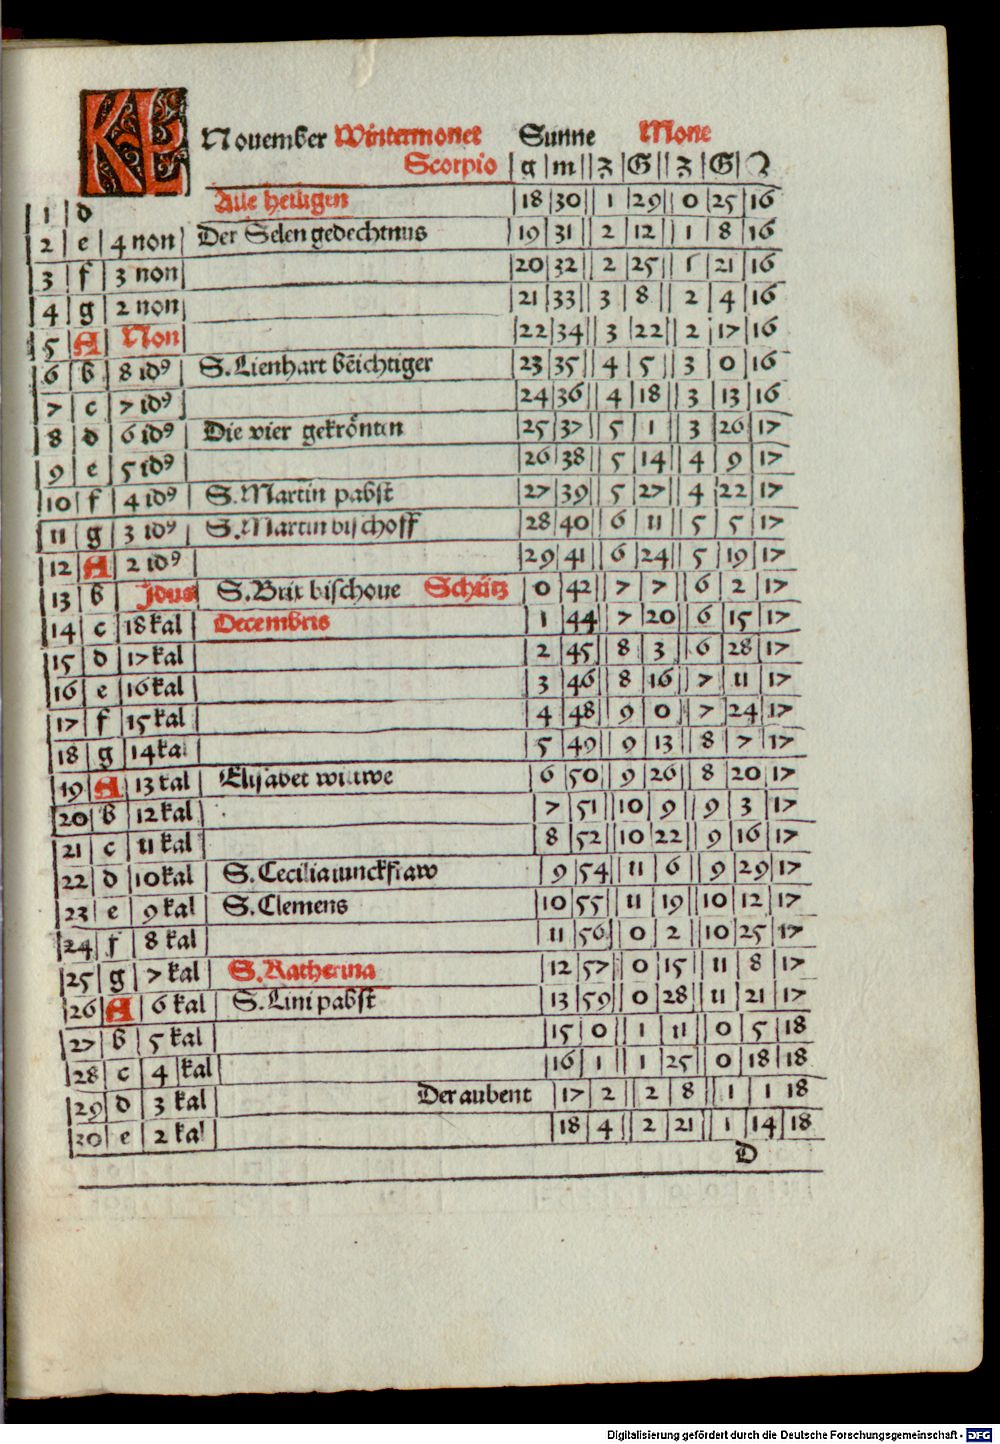 KL November Wintermonet Sunne Mone
Scorpio g m Z G Z G
1 d Alle heiligen 18 30 1 29 0 25 16
2 e 4 non Der Selen gedechtnus 19 31 2 12 1 8 16
3 f 3 non 20 32 2 25 1 21 16
4 g 2 non 21 33 3 8 2 4 16
5 A Non 22 34 3 22 2 17 16
6 b 8 idꝰ S. Lienhart bēichtiger 23 35 4 5 3 0 16
7 c 7 idꝰ 24 36 4 18 3 13 16
8 d 6 idꝰ Die vier gekrönten 25 37 5 1 3 26 17
9 e 5 idꝰ 26 38 5 14 4 9 17
10 f 4 idꝰ S. Martin pabst 27 39 5 27 4 22 17
11 g 3 idꝰ S. Martin bischoff 28 40 6 11 5 5 17
12 A 2 idꝰ 29 41 6 24 5 19 17
13 b Idus S. Brix bischove Schütz 0 42 7 7 6 2 17
14 c 18 kal Decembris 1 44 7 20 6 15 17
15 d 17 kal 2 45 8 3 6 28 17
16 e 16 kal 3 46 8 16 7 11 17
17 f 15 kal 4 48 9 0 7 24 17
18 g 14 kal 5 49 9 13 8 7 17
19 A 13 kal Elisabet wittwe 6 50 9 26 8 20 17
20 b 12 kal 7 51 10 9 9 3 17
21 c 11 kal 8 52 10 22 9 16 17
22 d 10 kal S. Cecilia iunckfraw 9 54 11 6 9 29 17
23 e 9 kal S. Clemens 10 55 11 19 10 12 17
24 f 8 kal 11 56 0 2 10 25 17
25 g 7 kal S. Katherina 12 57 0 15 11 8 17
26 A 6 kal S. Lini pabst 13 59 0 28 11 21 17
27 b 5 kal 15 0 1 11 0 5 18
28 c 4 kal 16 1 1 25 0 18 18
29 d 3 kal Der aubent 17 2 2 8 1 1 18
30 e 2 kal 18 4 2 21 1 14 18
D
Digitalisierung gefördert durch die Deutsche Forschungsgemeinschaft - DFG